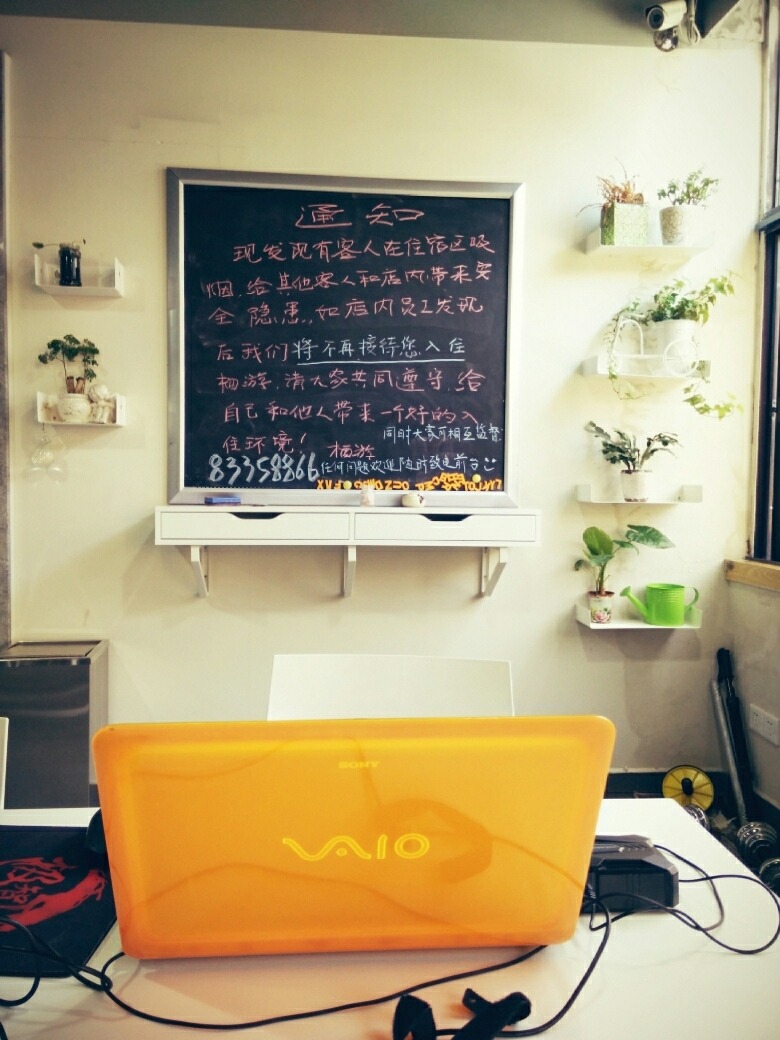 通知
现发现有客人在住宿区吸
烟,给其他客人和店内带来安
全隐患,如店内员工发现
后我们将不再接待您入住
栖游,请大家共同遵守,给
自己和他人带来一个好的入
住环境! 栖游
同时大家可相互监督
83358866
任何问题欢迎随时致电前台
SONY
VAIO